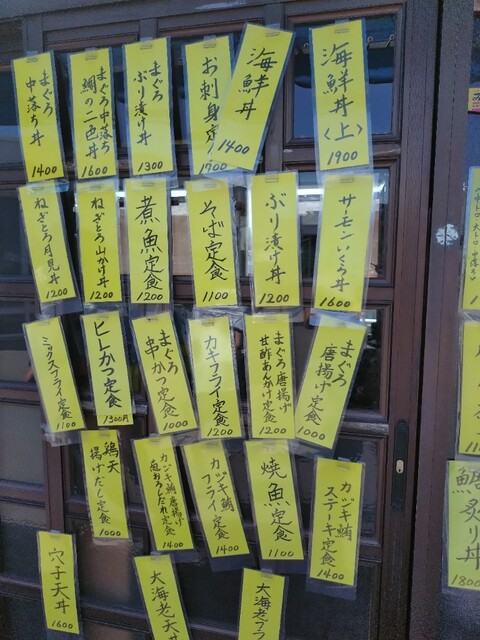 まぐろ
中落ち丼
1400
まぐろ中落ち
鯛の二色丼
1600
まぐろ
ぶり漬け丼
1300
お刺身定
1700
海鮮丼
1400
海鮮丼〈上〉
1900
ねぎとろ月見丼
1200
ねぎとろ山かけ丼
1200
煮魚定食
1200
そば定食
1100
ぶり漬け丼
1200
サーモンいくら丼
1600
ミックスフライ定食
1100
ヒレかつ定食
1300円
まぐろ
串かつ定食
1000
カキフライ定食
1200
まぐろ唐揚げ
甘酢あんかけ定食
1200
まぐろ
唐揚げ定食
1000
鶏天
揚げだし定食
1000
カジキ鮪唐揚げ
鬼おろしだれ定食
1400
カジキ鮪
フライ定食
1400
焼魚定食
1100
カジキ鮪
ステーキ定食
1400
穴子天丼
1600
大海老天
大海老フラ
炙り丼
1800